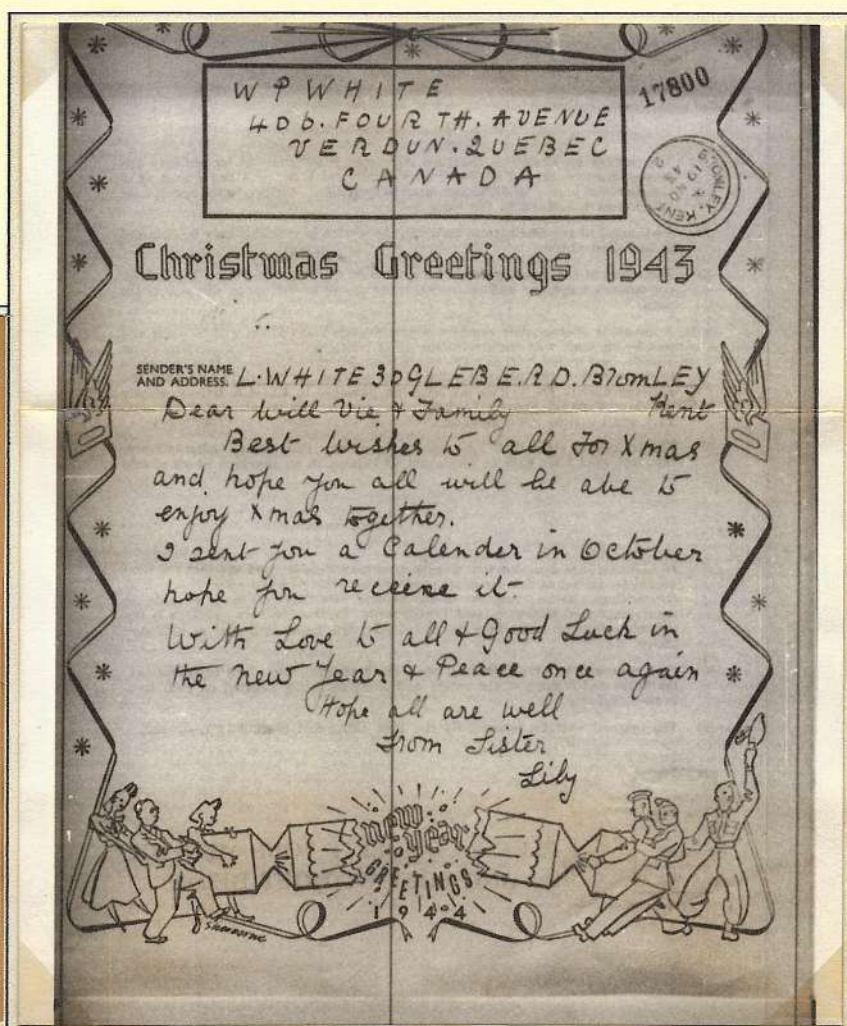 W P WHITE
406. FOURTH. AVENUE
VERDUN. QUEBEC
CANADA
17800
BROMLEY, KENT
Christmas Greetings 1943
SENDER'S NAME
AND ADDRESS. L. WHITE 30 GLEBE. RD. BromLEY
Kent
Dear Will Vie & Family
Best wishes to all for Xmas
and hope you all will be abe to
enjoy Xmas together.
I sent you a Calender in October
hope you receive it.
With Love to all & Good Luck in
the new Year & Peace once again
Hope all are well
From Sister
Lily
new
year
GREETINGS
1944